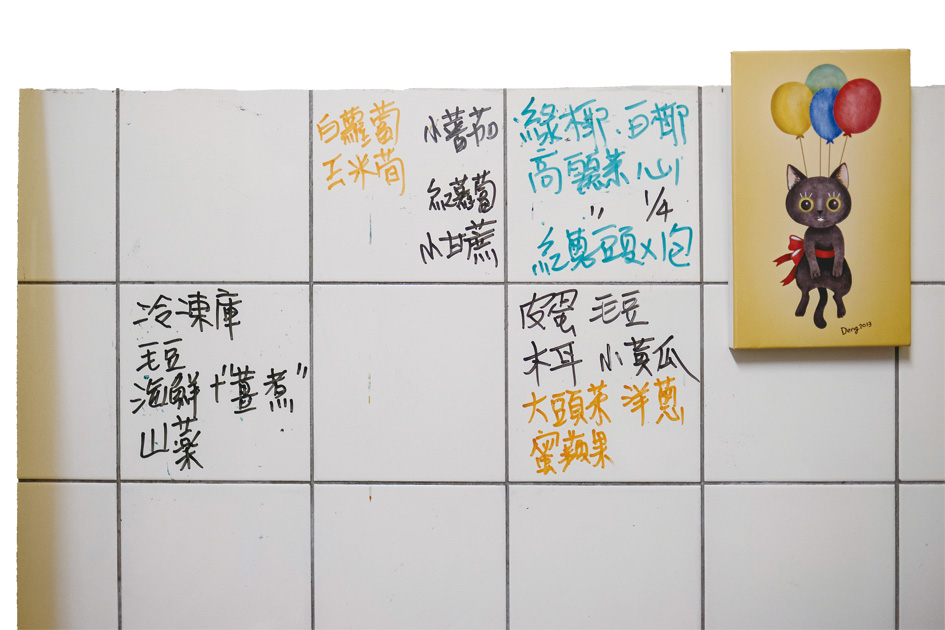 白蘿蔔
玉米筍
小番茄
紅蘿蔔
小甘蔗
綠椰、白椰
高麗菜 心
" 1/4
紅蔥頭x1包
冷凍庫
毛豆
海鮮+"薑煮"
山藥
皮蛋 毛豆
木耳 小黃瓜
大頭菜 洋蔥
蜜蘋果
Deng.2013